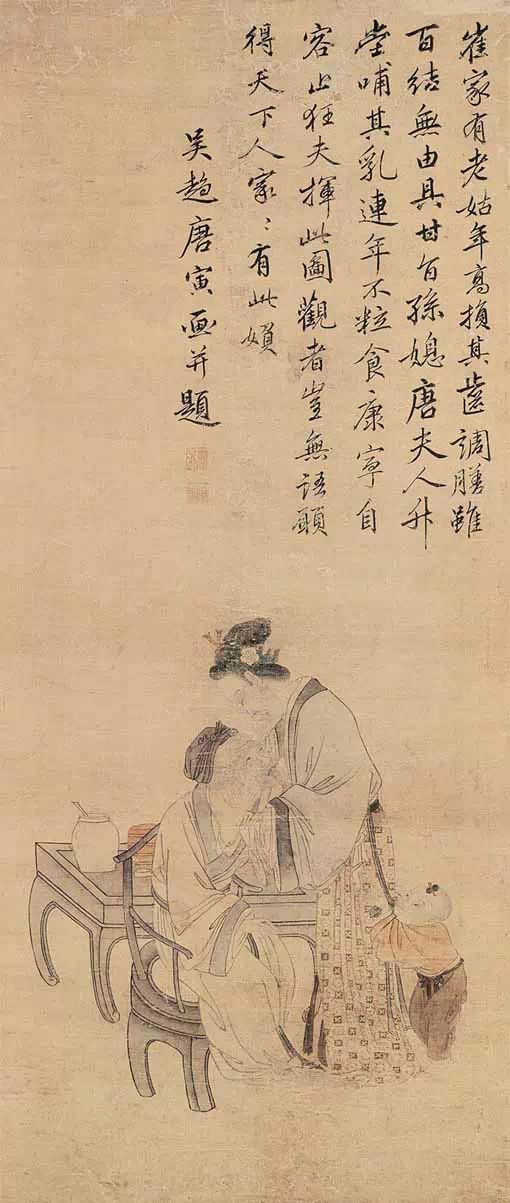 崔家有老姑年高損其齒調膳雖
百結無由具甘旨孫媳唐夫人升
堂哺其乳連年不粒食康寧自
容止狂夫揮此圖觀者豈無語願
得天下人家〻有此媍
吳趨唐寅画并題